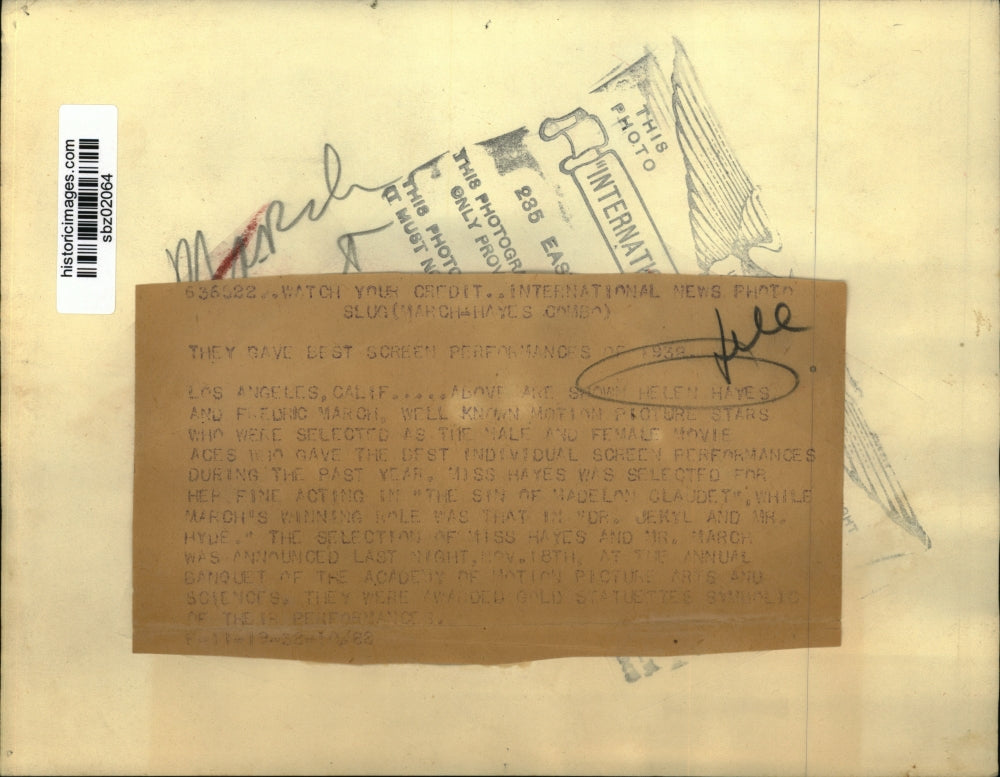 historicimages.com
sbz02064
March
THIS
PHOTO
"INTERNATI
235 EAS
THIS PHOTOGR
ONLY PROV
THIS PHOTO
IT MUST N
WATCH YOUR CREDIT..INTERNATIONAL NEWS PHOTO
SLUG(MARCH&HAYES COMBO)
THEY GAVE BEST SCREEN PERFORMANCES OF
LOS ANGELES, CALIF.....ABOVE ARE SHOWN HELEN HAYES
AND FREDRIC MARCH, WELL KNOWN MOTION PICTURE STARS
WHO WERE SELECTED AS THE MALE AND FEMALE MOVIE
ACES WHO GAVE THE BEST INDIVIDUAL SCREEN PERFORMANCES
DURING THE PAST YEAR. MISS HAYES WAS SELECTED FOR
HER FINE ACTING IN "THE SIN OF MADELON CLAUDET", WHILE
MARCH'S WINNING ROLE WAS THAT IN "DR. JEKYL AND MR.
HYDE." THE SELECTION OF MISS HAYES AND MR. MARCH
WAS ANNOUNCED LAST NIGHT, NOV. 18TH, AT THE ANNUAL
BANQUET OF THE ACADEMY OF MOTION PICTURE ARTS AND
SCIENCES. THEY WERE AWARDED GOLD STATUETTES SYMBOLIC
OF THEIR PERFORMANCES.